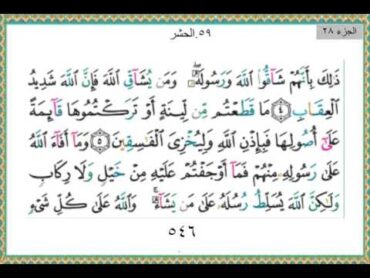 الجزء ٢٨
٥٩.الحشر
ذَٰلِكَ بِأَنَّهُمْ شَاقُّوا۟ ٱللَّهَ وَرَسُولَهُۥ ۖ وَمَن يُشَاقِّ ٱللَّهَ فَإِنَّ ٱللَّهَ شَدِيدُ
ٱلْعِقَابِ ٤ مَا قَطَعْتُم مِّن لِّينَةٍ أَوْ تَرَكْتُمُوهَا قَآئِمَةً
عَلَىٰٓ أُصُولِهَا فَبِإِذْنِ ٱللَّهِ وَلِيُخْزِىَ ٱلْفَٰسِقِينَ ٥ وَمَآ أَفَآءَ ٱللَّهُ
عَلَىٰ رَسُولِهِۦ مِنْهُمْ فَمَآ أَوْجَفْتُمْ عَلَيْهِ مِنْ خَيْلٍ وَلَا رِكَابٍ
وَلَٰكِنَّ ٱللَّهَ يُسَلِّطُ رُسُلَهُۥ عَلَىٰ مَن يَشَآءُ ۚ وَٱللَّهُ عَلَىٰ كُلِّ شَىْءٍ
٥٤٦